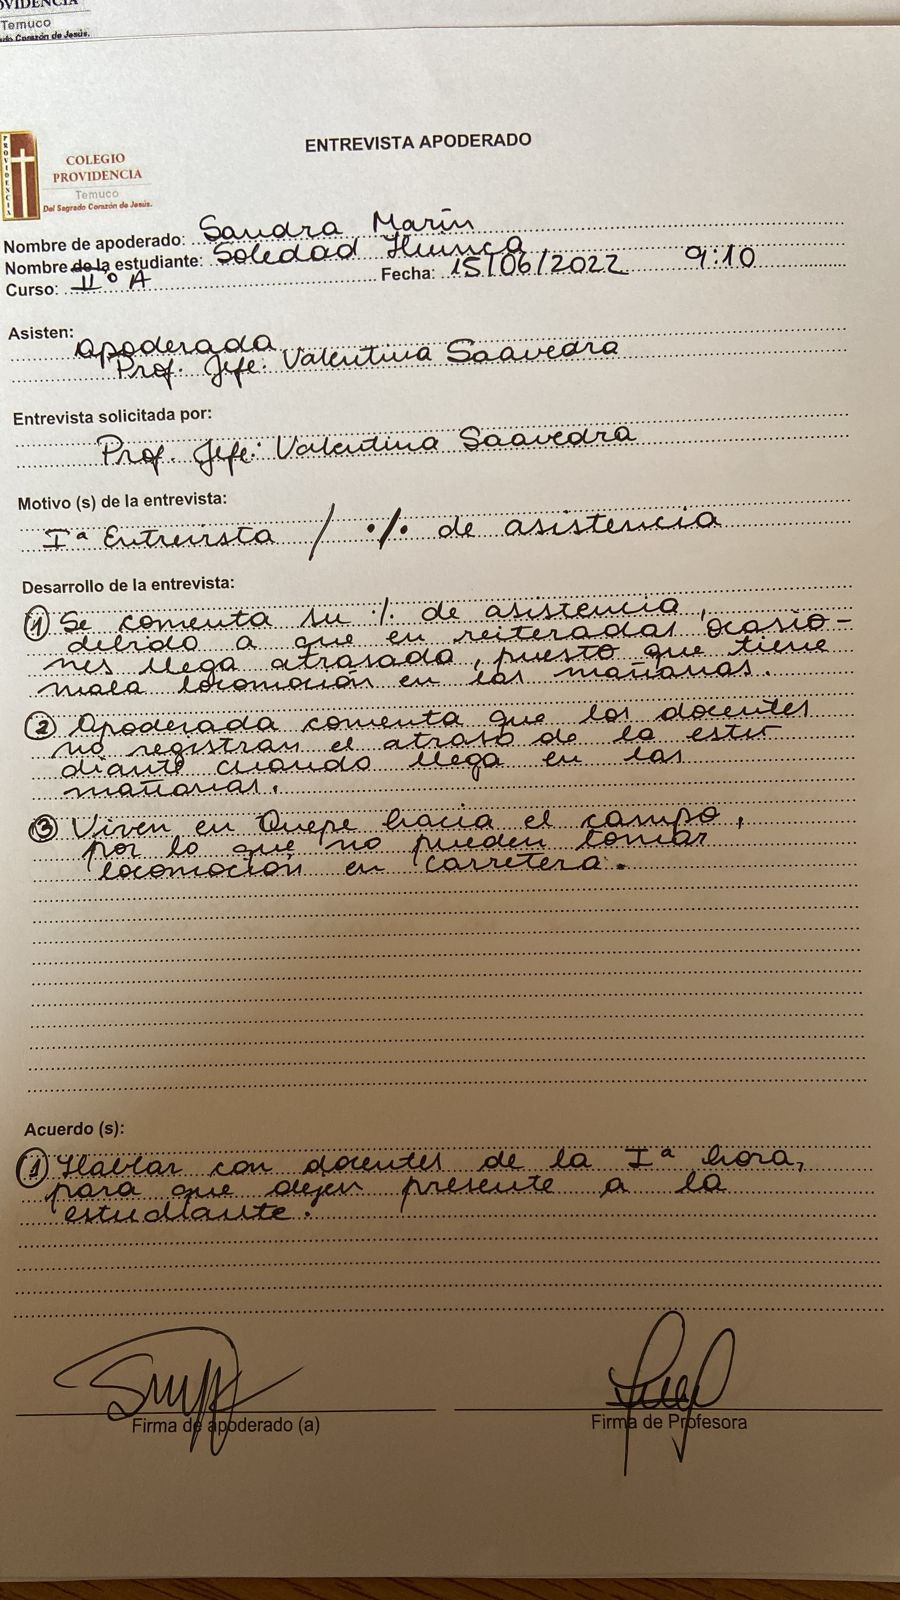 OVIDENCIA
Temuco
ado Corazón de Jesús.
ENTREVISTA APODERADO
PROVIDENCIA
COLEGIO
PROVIDENCIA
Temuco
Del Sagrado Corazón de Jesús.
Nombre de apoderado: Sandra Marín
Nombre de la estudiante: Soledad Huinca
Curso: II° A Fecha: 15/06/2022 9:10
Asisten:
Apoderada
Prof. Jefe: Valentina Saavedra
Entrevista solicitada por:
Prof. Jefe: Valentina Saavedra
Motivo (s) de la entrevista:
Iª Entrevista / % de asistencia
Desarrollo de la entrevista:
① Se comenta su % de asistencia,
debido a que en reiteradas ocasio-
nes llega atrasada, puesto que tiene
mala locomoción en las mañanas.
② Apoderada comenta que los docentes
no registran el atraso de la estu
diante cuando llega en las
mañanas.
③ Viven en Quepe hacia el campo,
por lo que no pueden tomar
locomoción en carretera.
Acuerdo (s):
① Hablar con docentes de la Iª hora,
para que dejen presente a la
estudiante.
Firma de apoderado (a)
Firma de Profesora